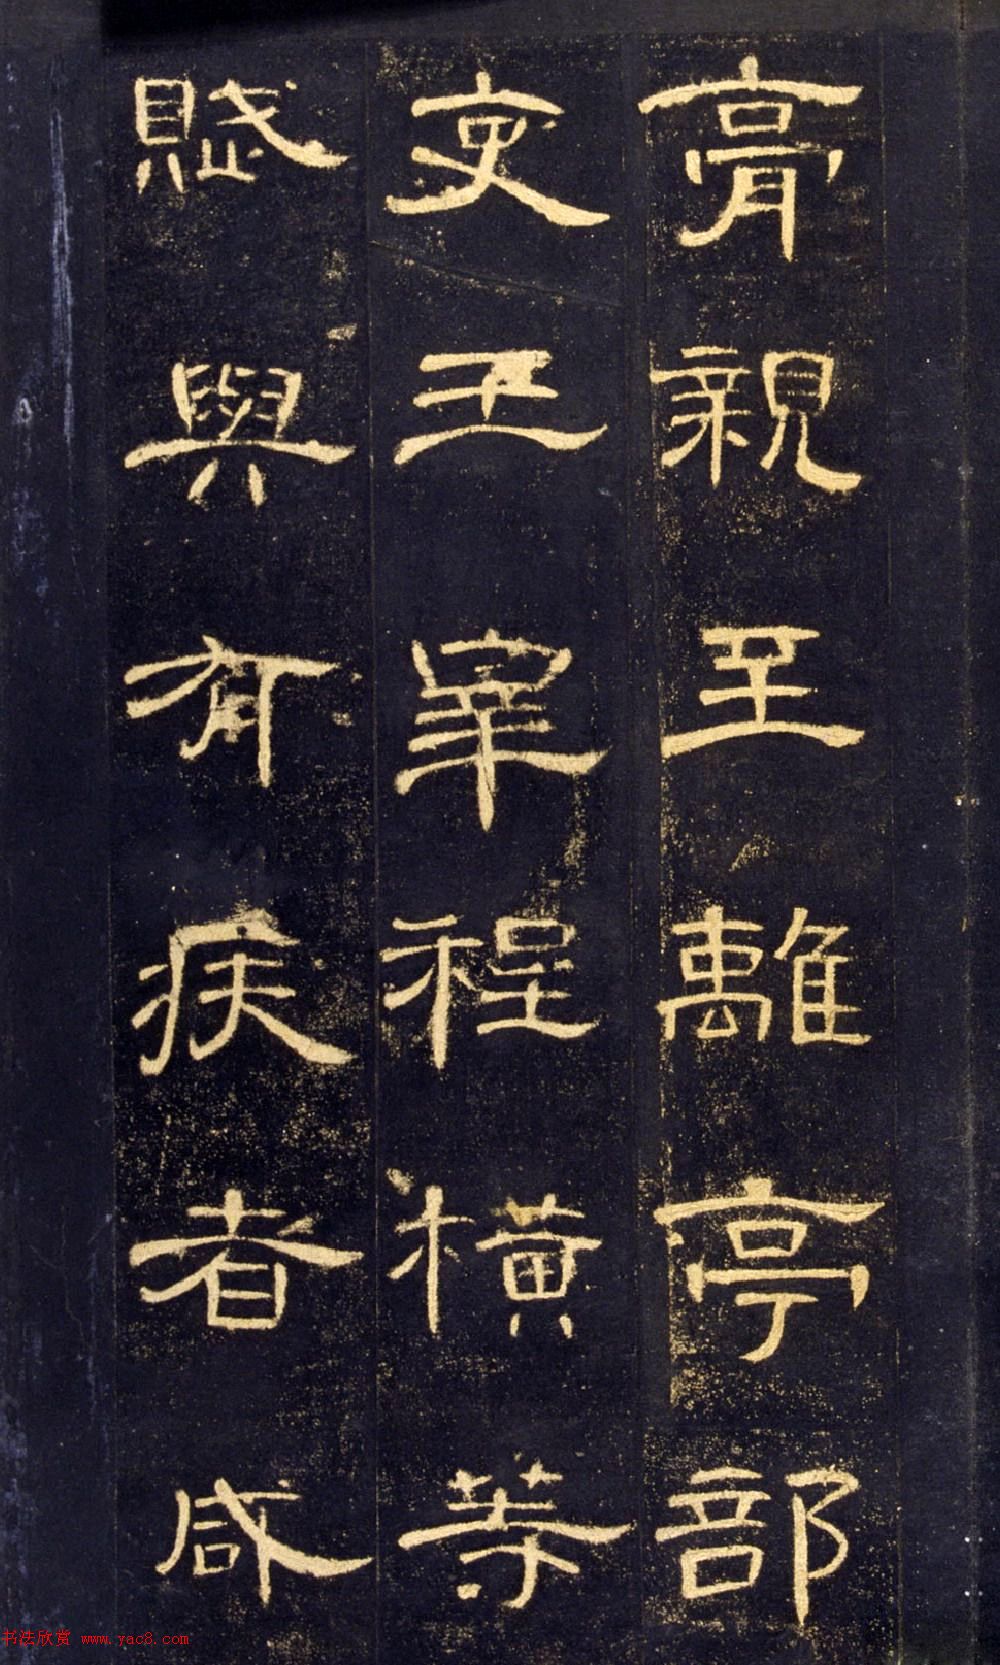 膏親至離亭部
吏王宰程橫等
賦與有疾者咸
书法欣赏 www.yac8.com